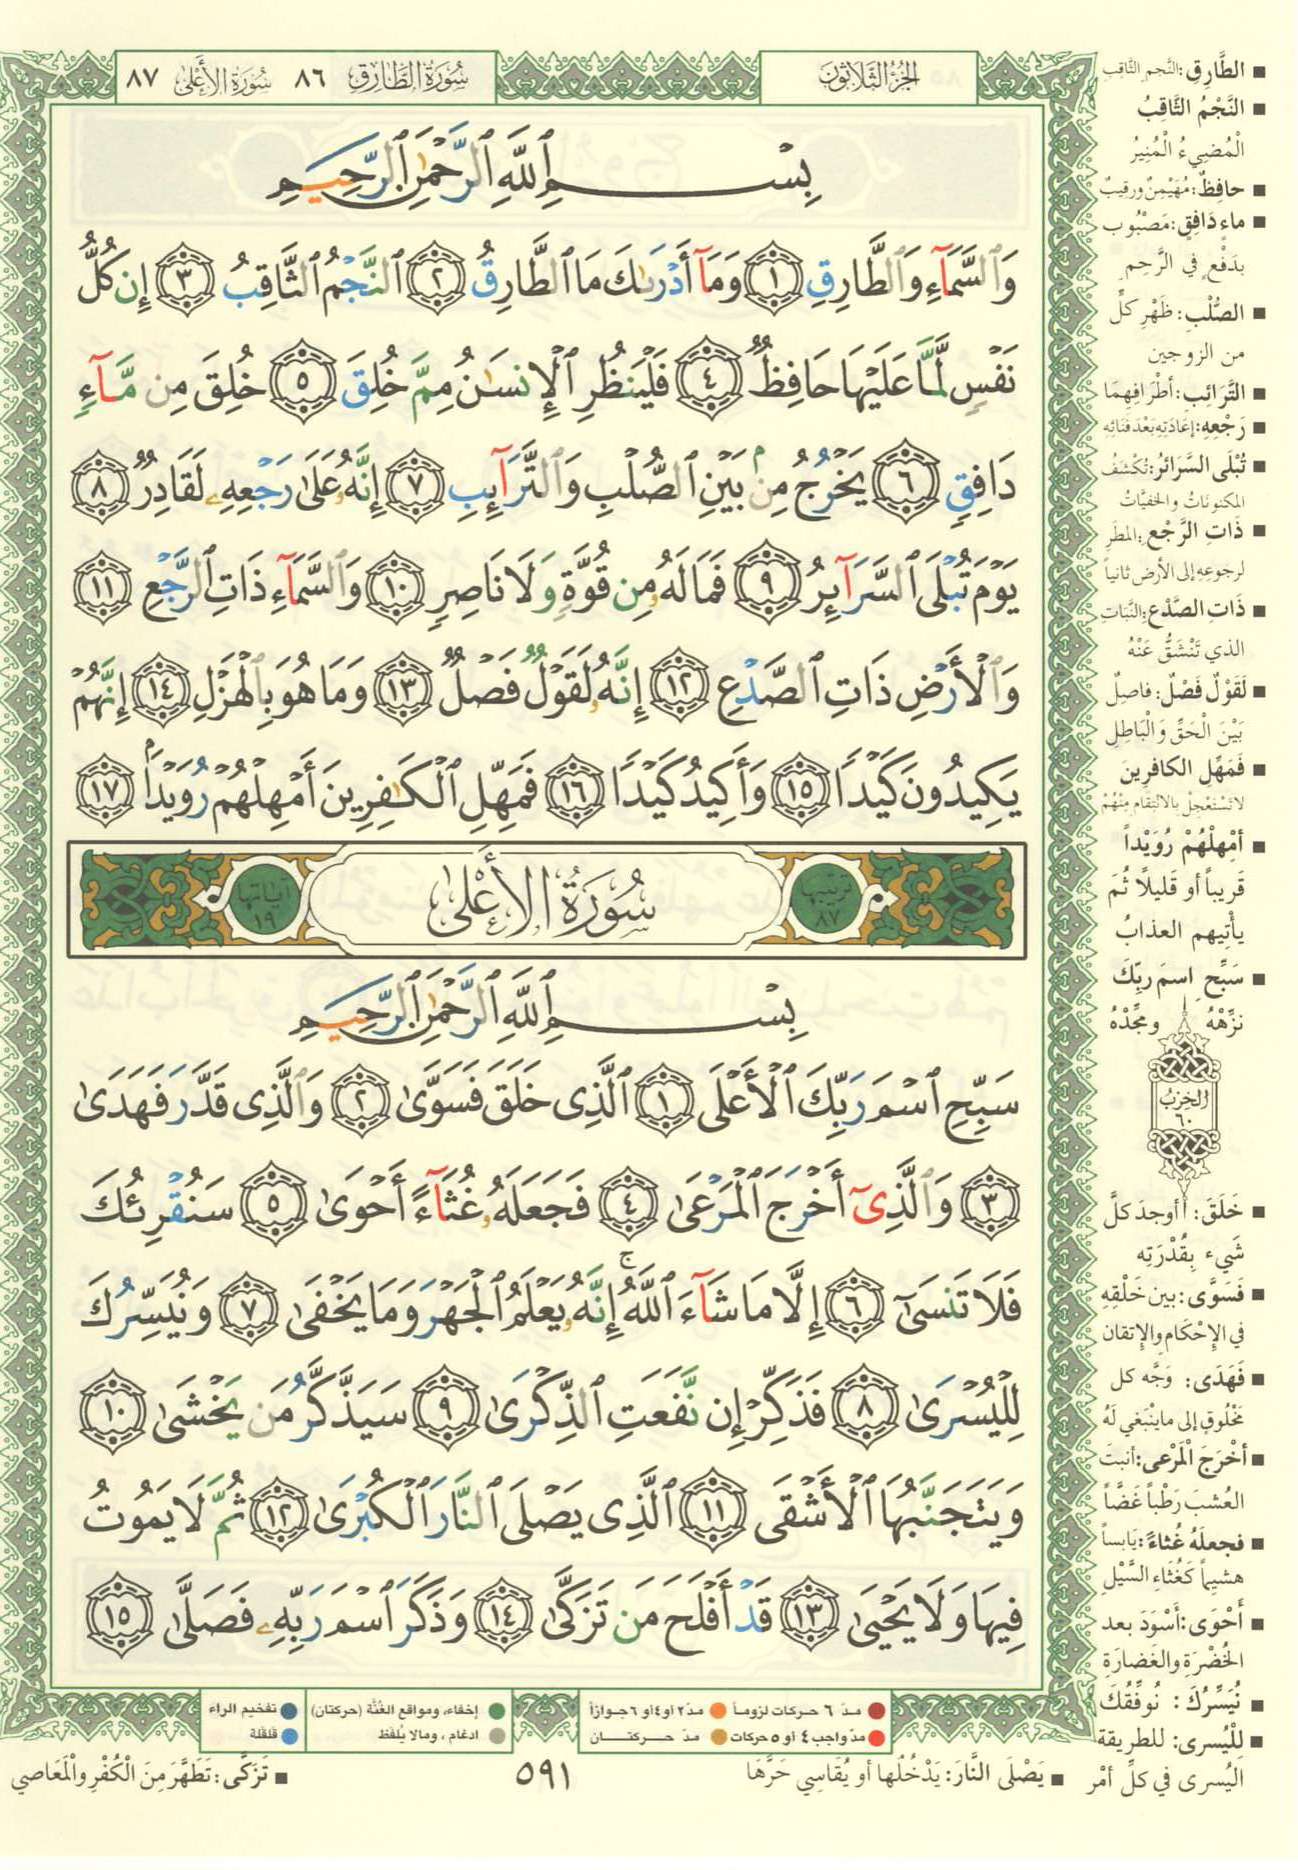 الجزء الثلاثون
سورة الطارق ٨٦ سورة الأعلى ٨٧
بِسْمِ ٱللَّهِ ٱلرَّحْمَٰنِ ٱلرَّحِيمِ
وَٱلسَّمَآءِ وَٱلطَّارِقِ ١ وَمَآ أَدْرَىٰكَ مَا ٱلطَّارِقُ ٢ ٱلنَّجْمُ ٱلثَّاقِبُ ٣ إِن كُلُّ
نَفْسٍ لَّمَّا عَلَيْهَا حَافِظٌ ٤ فَلْيَنظُرِ ٱلْإِنسَٰنُ مِمَّ خُلِقَ ٥ خُلِقَ مِن مَّآءٍ
دَافِقٍ ٦ يَخْرُجُ مِنۢ بَيْنِ ٱلصُّلْبِ وَٱلتَّرَآئِبِ ٧ إِنَّهُۥ عَلَىٰ رَجْعِهِۦ لَقَادِرٌ ٨
يَوْمَ تُبْلَى ٱلسَّرَآئِرُ ٩ فَمَا لَهُۥ مِن قُوَّةٍ وَلَا نَاصِرٍ ١٠ وَٱلسَّمَآءِ ذَاتِ ٱلرَّجْعِ ١١
وَٱلْأَرْضِ ذَاتِ ٱلصَّدْعِ ١٢ إِنَّهُۥ لَقَوْلٌ فَصْلٌ ١٣ وَمَا هُوَ بِٱلْهَزْلِ ١٤ إِنَّهُمْ
يَكِيدُونَ كَيْدًا ١٥ وَأَكِيدُ كَيْدًا ١٦ فَمَهِّلِ ٱلْكَٰفِرِينَ أَمْهِلْهُمْ رُوَيْدًۢا ١٧
ترتيبها ٨٧ سُورَةُ الأَعْلَىٰ آياتها ١٩
بِسْمِ ٱللَّهِ ٱلرَّحْمَٰنِ ٱلرَّحِيمِ
سَبِّحِ ٱسْمَ رَبِّكَ ٱلْأَعْلَى ١ ٱلَّذِى خَلَقَ فَسَوَّىٰ ٢ وَٱلَّذِى قَدَّرَ فَهَدَىٰ
٣ وَٱلَّذِىٓ أَخْرَجَ ٱلْمَرْعَىٰ ٤ فَجَعَلَهُۥ غُثَآءً أَحْوَىٰ ٥ سَنُقْرِئُكَ
فَلَا تَنسَىٰٓ ٦ إِلَّا مَا شَآءَ ٱللَّهُ ۚ إِنَّهُۥ يَعْلَمُ ٱلْجَهْرَ وَمَا يَخْفَىٰ ٧ وَنُيَسِّرُكَ
لِلْيُسْرَىٰ ٨ فَذَكِّرْ إِن نَّفَعَتِ ٱلذِّكْرَىٰ ٩ سَيَذَّكَّرُ مَن يَخْشَىٰ ١٠
وَيَتَجَنَّبُهَا ٱلْأَشْقَى ١١ ٱلَّذِى يَصْلَى ٱلنَّارَ ٱلْكُبْرَىٰ ١٢ ثُمَّ لَا يَمُوتُ
فِيهَا وَلَا يَحْيَىٰ ١٣ قَدْ أَفْلَحَ مَن تَزَكَّىٰ ١٤ وَذَكَرَ ٱسْمَ رَبِّهِۦ فَصَلَّىٰ ١٥
الطَّارِقِ: النَّجم الثَّاقِب
النَّجْمُ الثَّاقِبُ
الْمُضِيءُ الْمُنِيرُ
حافِظٌ: مُهَيْمِنٌ ورقِيبٌ
ماءٍ دَافِقٍ: مَصْبُوب
بدَفْعٍ في الرَّحِمِ
الصُّلْبِ: ظَهْرِ كلِّ
من الزوجين
التَّرَائِبِ: أطْرَافِهِمَا
رَجْعِهِ: إعَادَتِهِ بَعْدَ فَنَائِهِ
تُبْلَى السَّرَائِرُ: تُكْشَفُ
المكنونَاتُ والخفِيَّاتُ
ذَاتِ الرَّجْعِ: المطَرِ
لرجوعِهِ إلى الأرض ثانياً
ذَاتِ الصَّدْعِ: النَّبَاتِ
الذي تَنْشَقُّ عَنْهُ
لَقَوْلٌ فَصْلٌ: فاصِلٌ
بَيْنَ الْحَقِّ وَالْبَاطِلِ
فَمَهِّلِ الكافِرِينَ
لا تَسْتَعْجِلْ بِالانْتِقَامِ مِنْهُمْ
أمْهِلْهُمْ رُوَيْداً
قَرِيباً أو قَليلاً ثُمَ
يأتِيهم العذابُ
سَبِّحِ اسمَ ربِّكَ
نزِّهْهُ ومجِّدْهُ
الحزب ٦٠
خَلَقَ: أوجدَ كلَّ
شَيءٍ بِقُدْرَتِهِ
فَسَوَّى: بين خَلْقِهِ
في الإِحْكَامِ والإِتقان
فَهَدَى: وَجَّه كل
مَخْلُوقٍ إلى ما ينْبَغي لَهُ
أخْرَجَ الْمَرْعى: أنبتَ
العُشبَ رَطْباً غَضّاً
فجعلَهُ غُثاءً: يَابساً
هشيماً كَغُثَاءِ السَّيْلِ
أَحْوَى: أَسْوَدَ بعد
الخُضْرَةِ والغَضارَةِ
نُيَسِّرُكَ: نُوفِّقُكَ
لِلْيُسرى: للطريقة
اليُسرى في كلِّ أمْر
مدّ ٦ حركات لزوماً مدّ ٢ أو ٤ أو ٦ جوازاً
مدّ واجب ٤ أو ٥ حركات مدّ حركتان
إخفاء، ومواقع الغُنَّة (حركتان) تفخيم الراء
ادغام، ومالا يُلفَظ قلقلة
يَصْلَى النَّارَ: يَدْخُلُها أو يُقَاسِي حَرَّهَا
٥٩١
تَزَكَّى: تَطَهَّرَ مِنَ الْكُفْرِ والْمَعَاصي